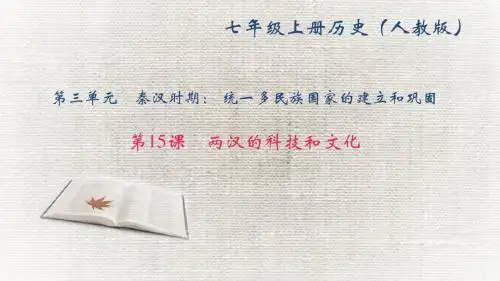 七年级上册历史（人教版）
第三单元　秦汉时期：统一多民族国家的建立和巩固
第15课　两汉的科技和文化